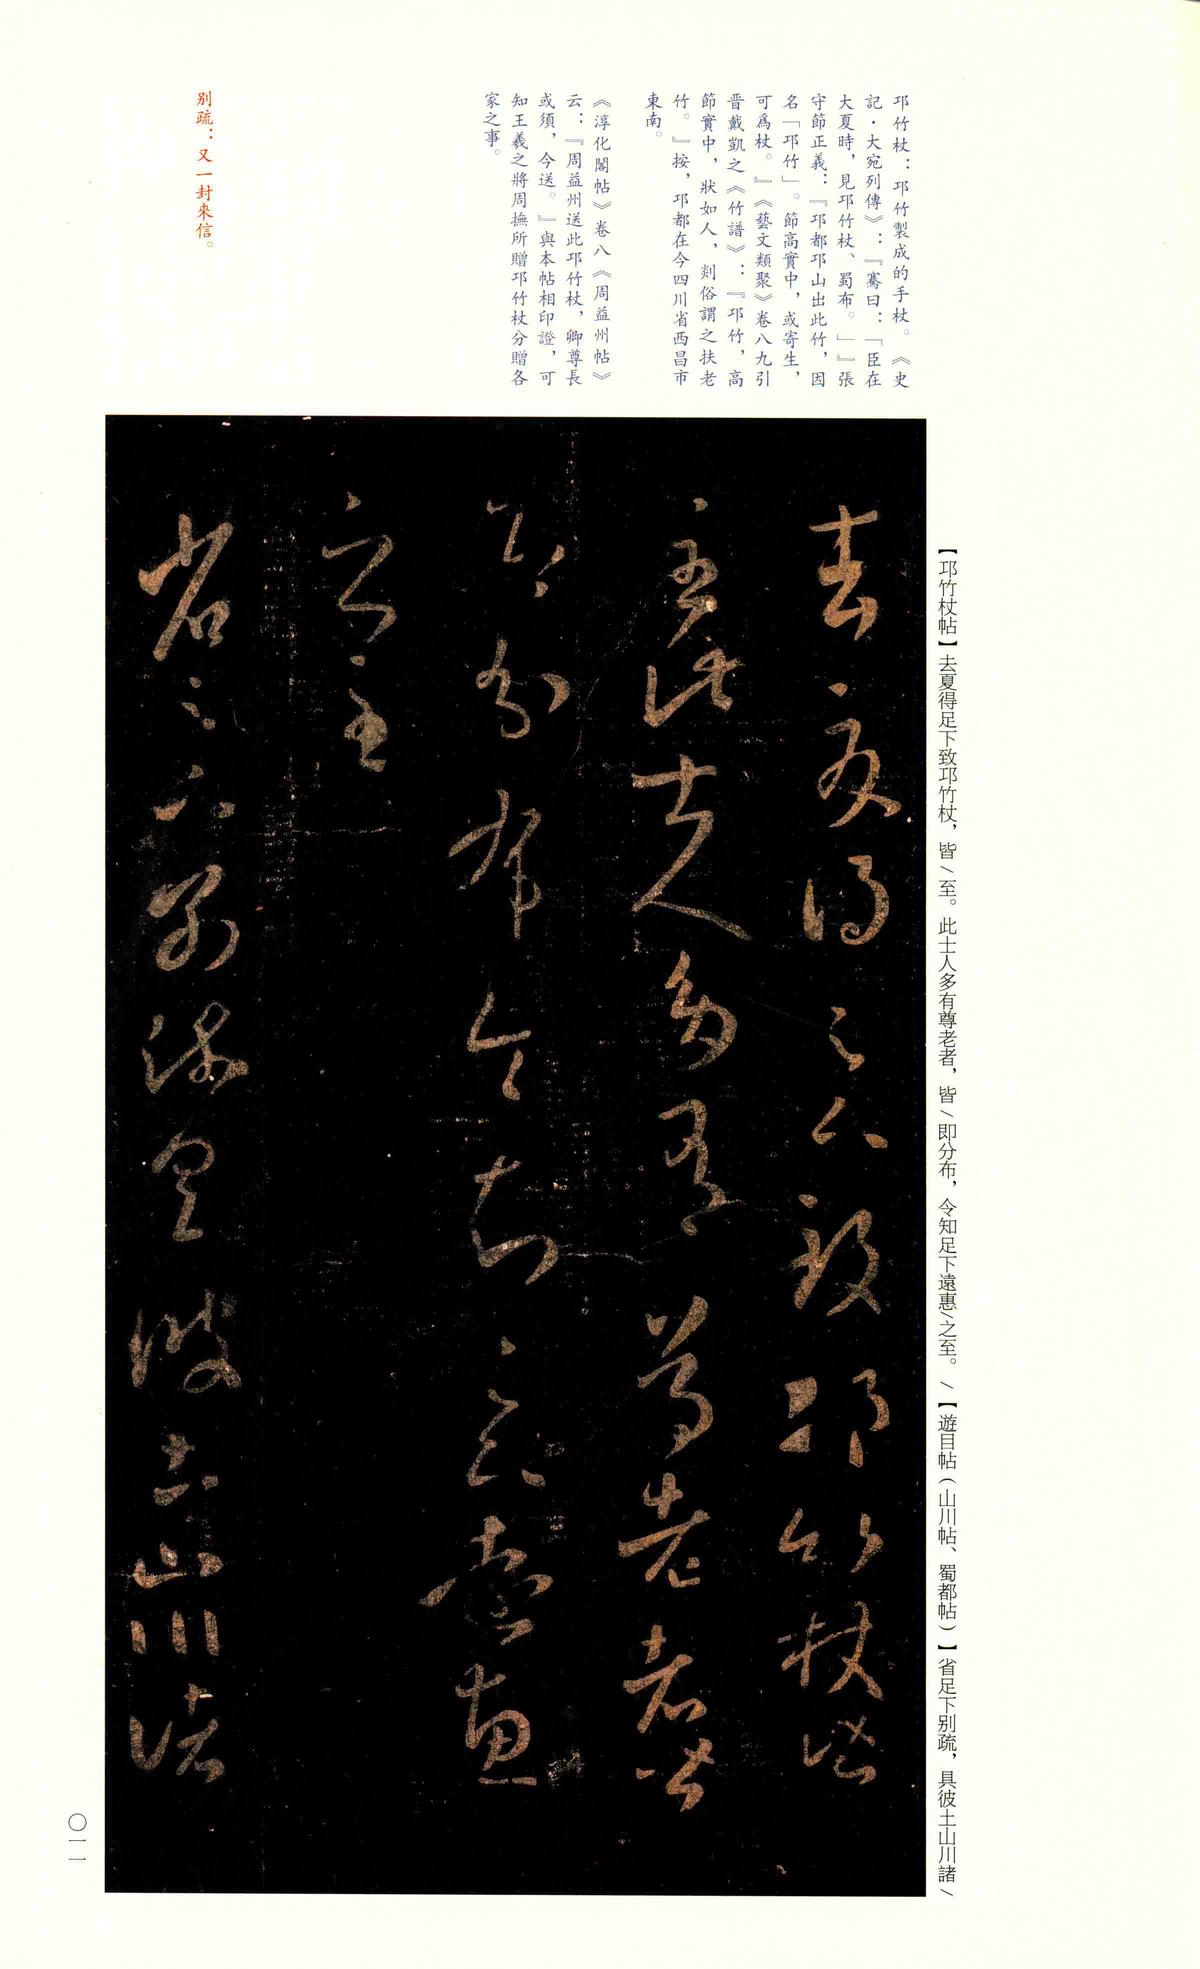 邛竹杖：邛竹製成的手杖。《史
記·大宛列傳》：『騫曰：「臣在
大夏時，見邛竹杖、蜀布。」』張
守節正義：『邛都邛山出此竹，因
名「邛竹」。節高實中，或寄生，
可爲杖。』《藝文類聚》卷八九引
晋戴凱之《竹譜》：『邛竹，高
節實中，狀如人，剡俗謂之扶老
竹。』按，邛都在今四川省西昌市
東南。
《淳化閣帖》卷八《周益州帖》
云：『周益州送此邛竹杖，卿尊長
或須，今送。』與本帖相印證，可
知王羲之將周撫所贈邛竹杖分贈各
家之事。
别疏：又一封來信。
【邛竹杖帖】去夏得足下致邛竹杖，皆/至。此士人多有尊老者，皆/即分布，令知足下遠惠/之至。/【遊目帖（山川帖、蜀都帖）】省足下别疏，具彼土山川諸/
去夏得足下致邛竹杖皆
至此士人多有尊老者皆
即分布令知足下遠惠
之至
省足下别疏具彼土山川諸
〇一一